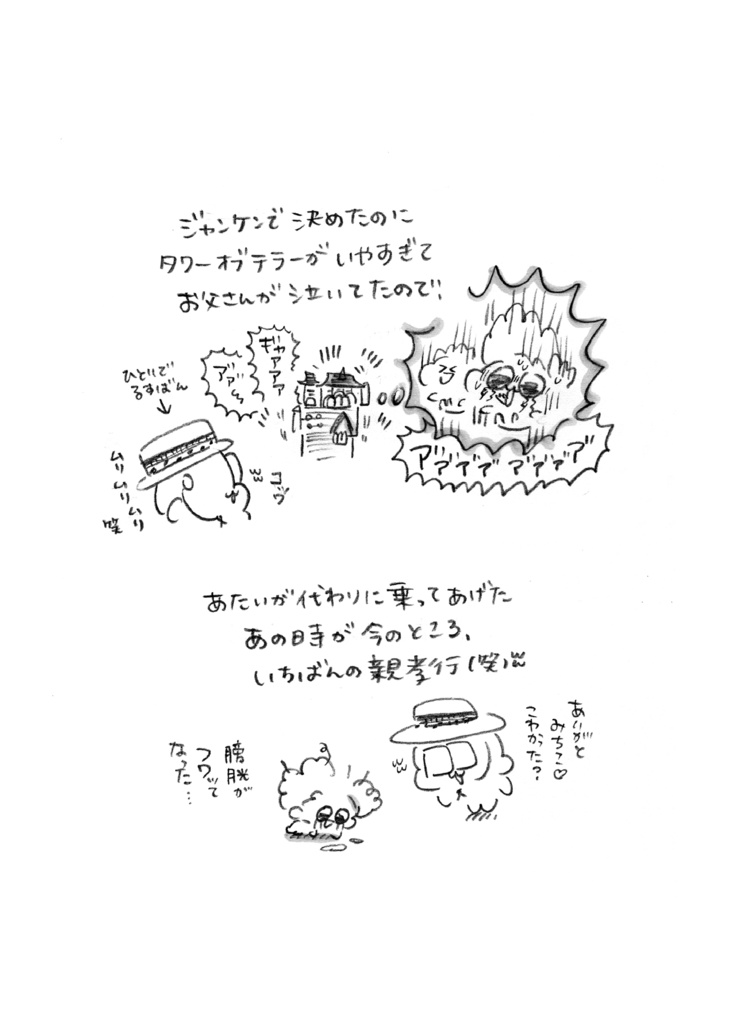 ジャンケンで決めたのに
タワーオブテラーがいやすぎて
お父さんが泣いてたので、
ギャアアア
アアア
ひとりで
るすばん
ムリムリムリ
笑
アアアアアアアア
あたいが代わりに乗ってあげた
あの日寺が今のところ、
いちばんの親孝行(笑)
ありがと
みちこ♡
こわかった?
膀胱が
フワッて
なった…